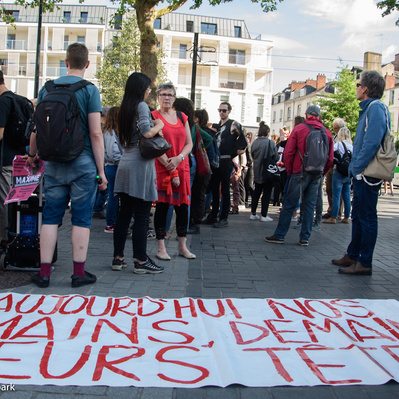 MAXIME
AUJOURD'HUI NOS
MAINS, DEMAIN
EURS TÊT
park